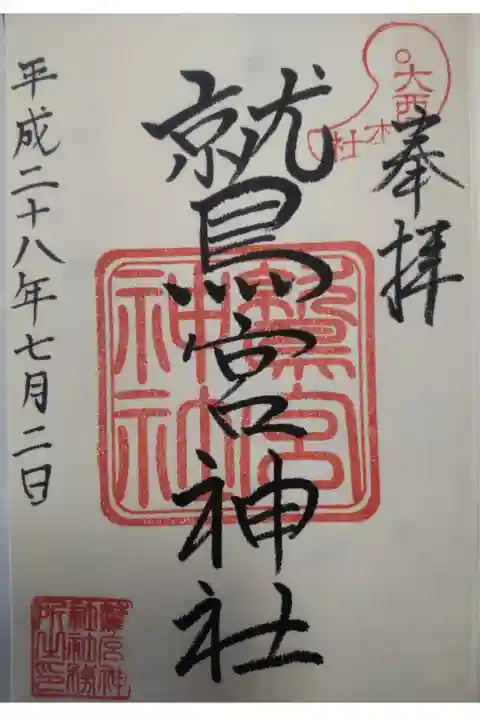 奉拝
大酉
本社
鷲宮神社
鷲宮神社
平成二十八年七月二日
鷲宮神社社務所之印